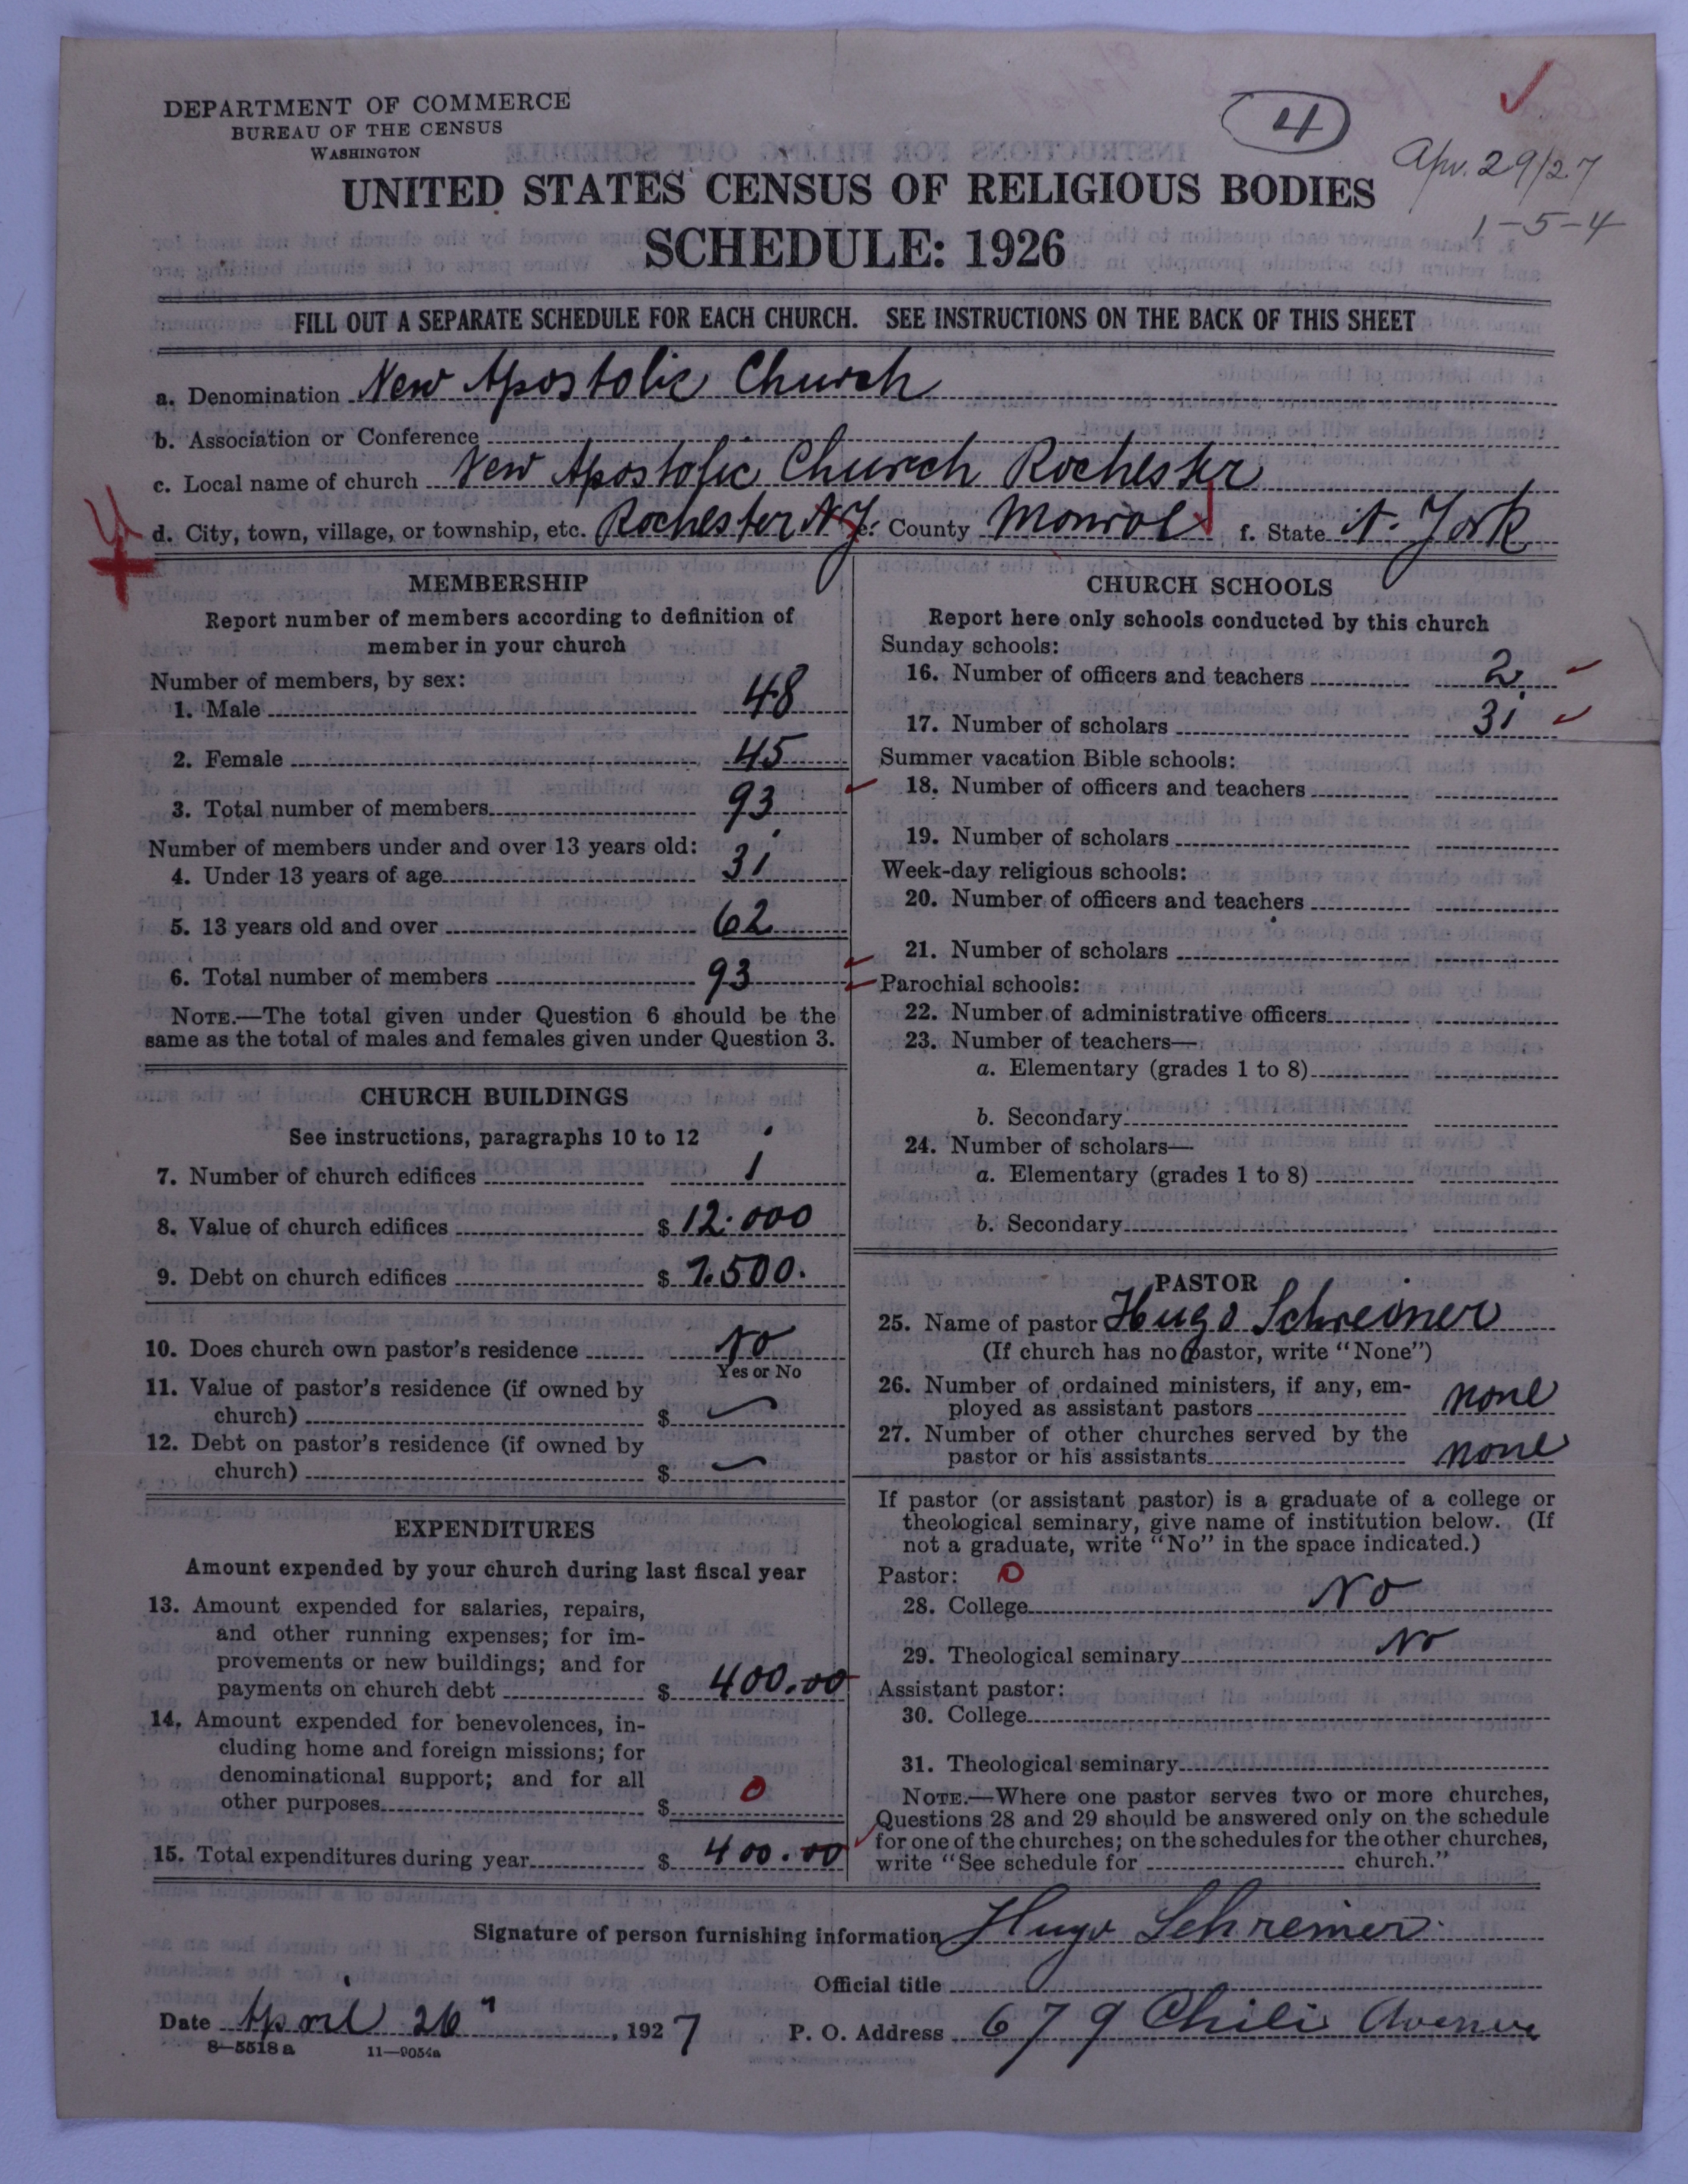 DEPARTMENT OF COMMERCE
BUREAU OF THE CENSUS
WASHINGTON
4
Apr. 29/27
1-5-4
UNITED STATES CENSUS OF RELIGIOUS BODIES
SCHEDULE: 1926
FILL OUT A SEPARATE SCHEDULE FOR EACH CHURCH. SEE INSTRUCTIONS ON THE BACK OF THIS SHEET
a. Denomination New Apostolic Church
b. Association or Conference
c. Local name of church New Apostolic Church Rochester
d. City, town, village, or township, etc. Rochester N.Y. e. County Monroe f. State N. York
MEMBERSHIP
Report number of members according to definition of
member in your church
Number of members, by sex:
1. Male 48
2. Female 45
3. Total number of members 93
Number of members under and over 13 years old:
4. Under 13 years of age 31
5. 13 years old and over 62
6. Total number of members 93
NOTE.—The total given under Question 6 should be the
same as the total of males and females given under Question 3.
CHURCH BUILDINGS
See instructions, paragraphs 10 to 12
7. Number of church edifices 1
8. Value of church edifices $ 12.000
9. Debt on church edifices $ 7.500.
10. Does church own pastor's residence No
Yes or No
11. Value of pastor's residence (if owned by
church) $ —
12. Debt on pastor's residence (if owned by
church) $ —
EXPENDITURES
Amount expended by your church during last fiscal year
13. Amount expended for salaries, repairs,
and other running expenses; for im-
provements or new buildings; and for
payments on church debt $ 400.00
14. Amount expended for benevolences, in-
cluding home and foreign missions; for
denominational support; and for all
other purposes $ 0
15. Total expenditures during year $ 400.00
CHURCH SCHOOLS
Report here only schools conducted by this church
Sunday schools:
16. Number of officers and teachers 2
17. Number of scholars 31
Summer vacation Bible schools:
18. Number of officers and teachers
19. Number of scholars
Week-day religious schools:
20. Number of officers and teachers
21. Number of scholars
Parochial schools:
22. Number of administrative officers
23. Number of teachers—
a. Elementary (grades 1 to 8)
b. Secondary
24. Number of scholars—
a. Elementary (grades 1 to 8)
b. Secondary
PASTOR
25. Name of pastor Hugo Schreiner
(If church has no pastor, write "None")
26. Number of ordained ministers, if any, em-
ployed as assistant pastors none
27. Number of other churches served by the
pastor or his assistants none
If pastor (or assistant pastor) is a graduate of a college or
theological seminary, give name of institution below. (If
not a graduate, write "No" in the space indicated.)
Pastor: 0
28. College No
29. Theological seminary No
Assistant pastor:
30. College
31. Theological seminary
NOTE.—Where one pastor serves two or more churches,
Questions 28 and 29 should be answered only on the schedule
for one of the churches; on the schedules for the other churches,
write "See schedule for church."
Signature of person furnishing information Hugo Schreiner
Official title
Date April 26", 1927 P. O. Address 679 Chili Avenue
8—5518a 11—9054a